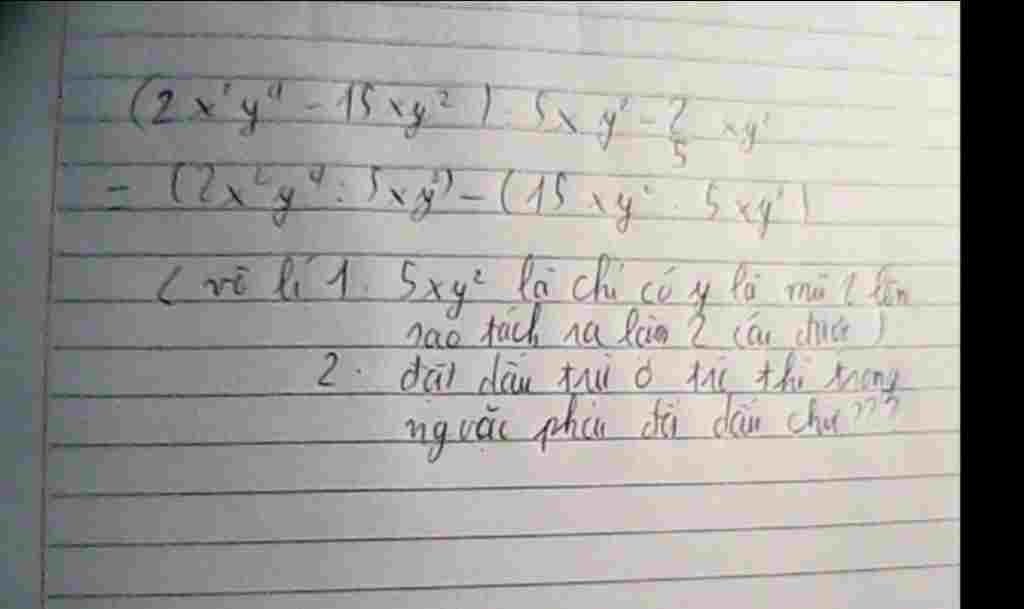 (2x²y⁴ - 15xy²) : 5xy² - 2/5 xy²
= (2x²y⁴ : 5xy²) - (15xy² : 5xy²)
( vô lí 1. 5xy² là chỉ có y là mũ 2 lên
sao tách ra làm 2 cái được )
2. đặt dấu trừ ở thì trong
ngoặc phải đổi dấu chứ???